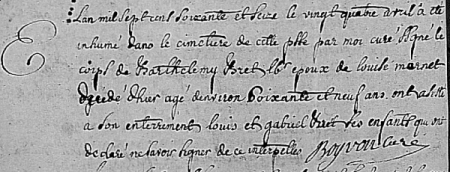 Lan mil sept cens soixante et seize le vingt quatre avril a eté
inhumé dans le cimetiere de cette psse par moi curé signé le
corps de Barthelemy Bret lbr epoux de louise mernet
decedé d'hier agé denviron soixante et neuf ans. ont assisté
a son enterrement louis et gabriel Bret ses enfants qui ont
declaré ne savoir signer de ce interpelles Boyron curé